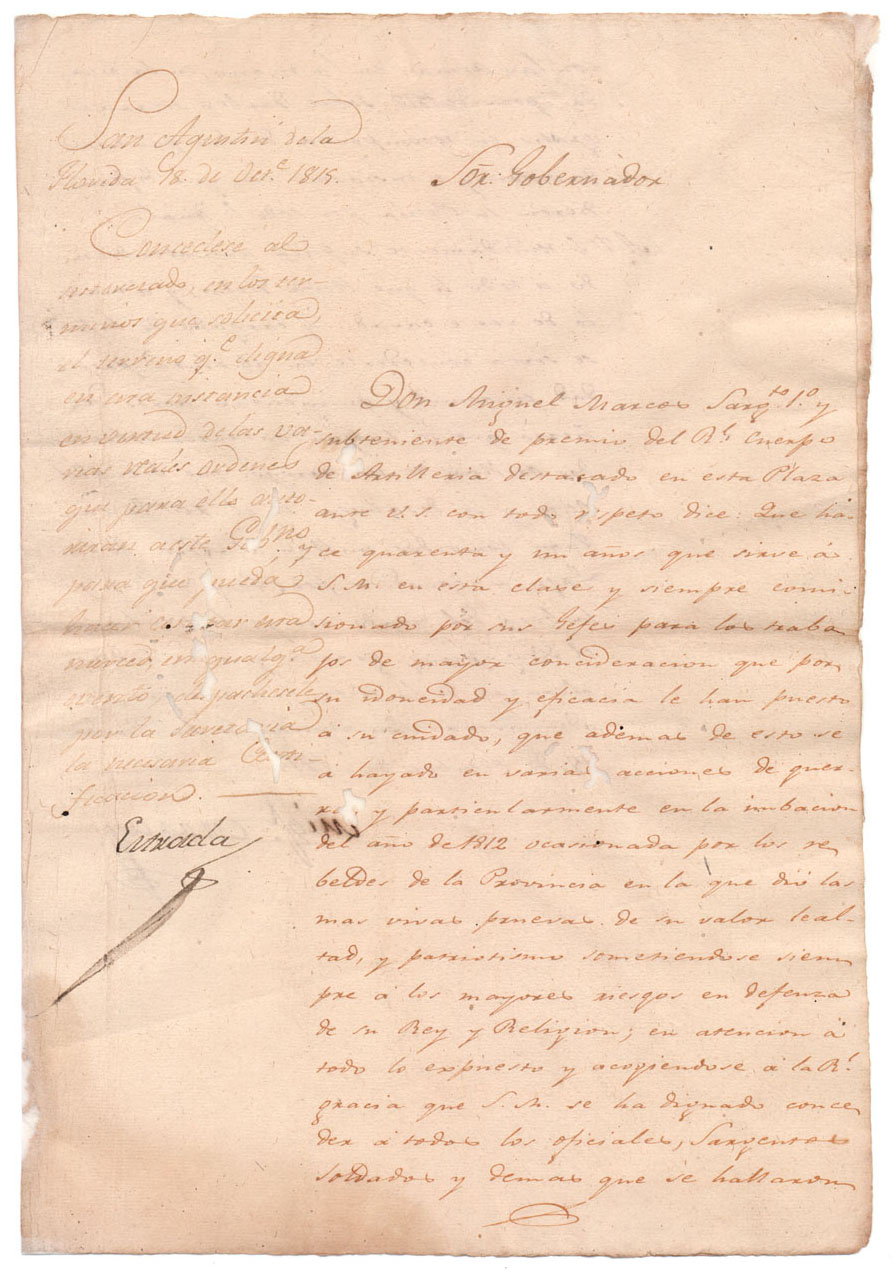 San Agustin de la
Florida 18. de Dere. 1815.
Concedese al
interezado, en los ter-
minos que solicita,
el terreno qe. cligna
en esta instancia
en virtud de las va-
rias reales ordenes
que para ello auto-
rizan a este Gobno. y
para que pueda
hacer constar esta
merced en qualqa.
evento, despachesele
por la
la necisaria Certi-
ficacion.
Estrada
Sor. Gobernador
Don Miguel Marcos Sargto. 1.o y
subteniente de premio del Rl. Cuerpo
de Artilleria destacado en esta Plaza
ante V.S. con todo respeto dice: Que há-
ce quarenta y un años que sirve á
S.M. en esta clase y siempre comi
sionado por sus Gefes para los traba
jos de mayor concideracion que por
su idoneidad y eficacia le han puesto
á su cuidado, que ademas de esto se
á hayado en varias acciones de guer-
ra, y particularmente en la imbacion
del año de 1812 ocasionada por los re
beldes de la Provincia en la que dió las
mas vivas pruevas de su valor leal-
tad, y patriotismo sometiendose siem
pre á los mayores riesgos en defenza
de su Rey y Religion; en atencion á
todo lo expuesto y acogiendose á la Rl.
gracia que S.M. se ha dignado conce
der á todos los oficiales, Sargentos
soldados y demas que se hallaron